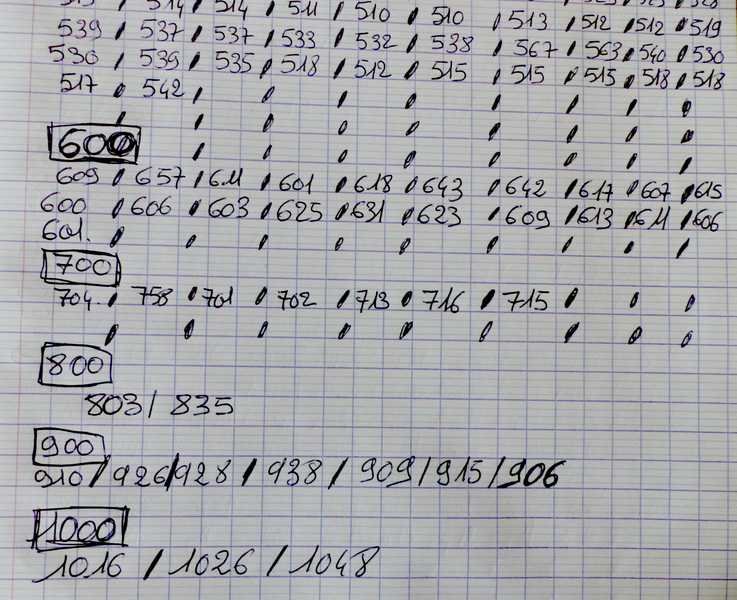 514 / 514 / 511 / 510 / 510 / 513 / 512 / 512 / 519
539 / 537 / 537 / 533 / 532 / 538 / 567 / 563 / 540 / 530
530 / 539 / 535 / 518 / 512 / 515 / 515 / 515 / 518 / 518
517 / 542 /
600
609 / 657 / 611 / 601 / 618 / 643 / 642 / 617 / 607 / 615
600 / 606 / 603 / 625 / 631 / 623 / 609 / 613 / 611 / 606
601.
700
704. / 758 / 701 / 702 / 713 / 716 / 715 /
800
803 / 835
900
910 / 926 / 928 / 938 / 909 / 915 / 906
1000
1016 / 1026 / 1048